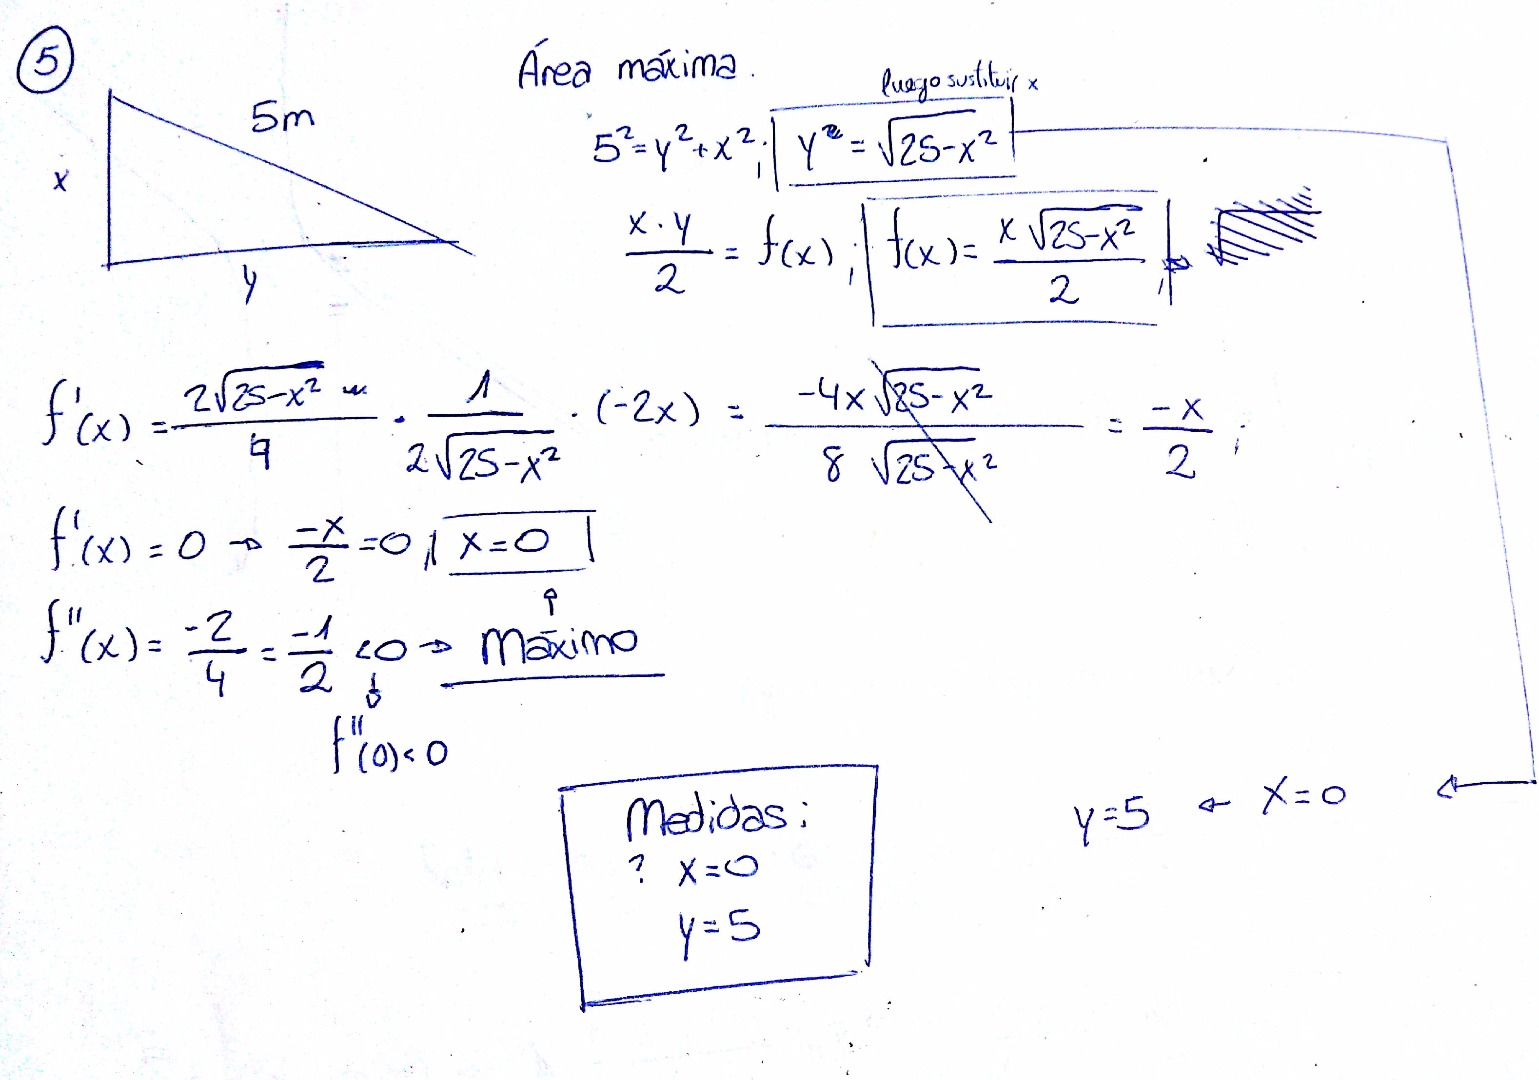 5
Área máxima.
5m
x
y
luego sustituir x
5²=y²+x²; y²=√25-x²
x·y/2 = f(x); f(x)= x√25-x²/2;
f'(x) = 2√25-x²/4 · 1/2√25-x² · (-2x) = -4x√25-x²/8√25-x² = -x/2;
f'(x)=0 → -x/2=0; x=0
f''(x)= -2/4 = -1/2 <0 → Máximo
f''(0)<0
Medidas:
? x=0
y=5
y=5 ← x=0 ←